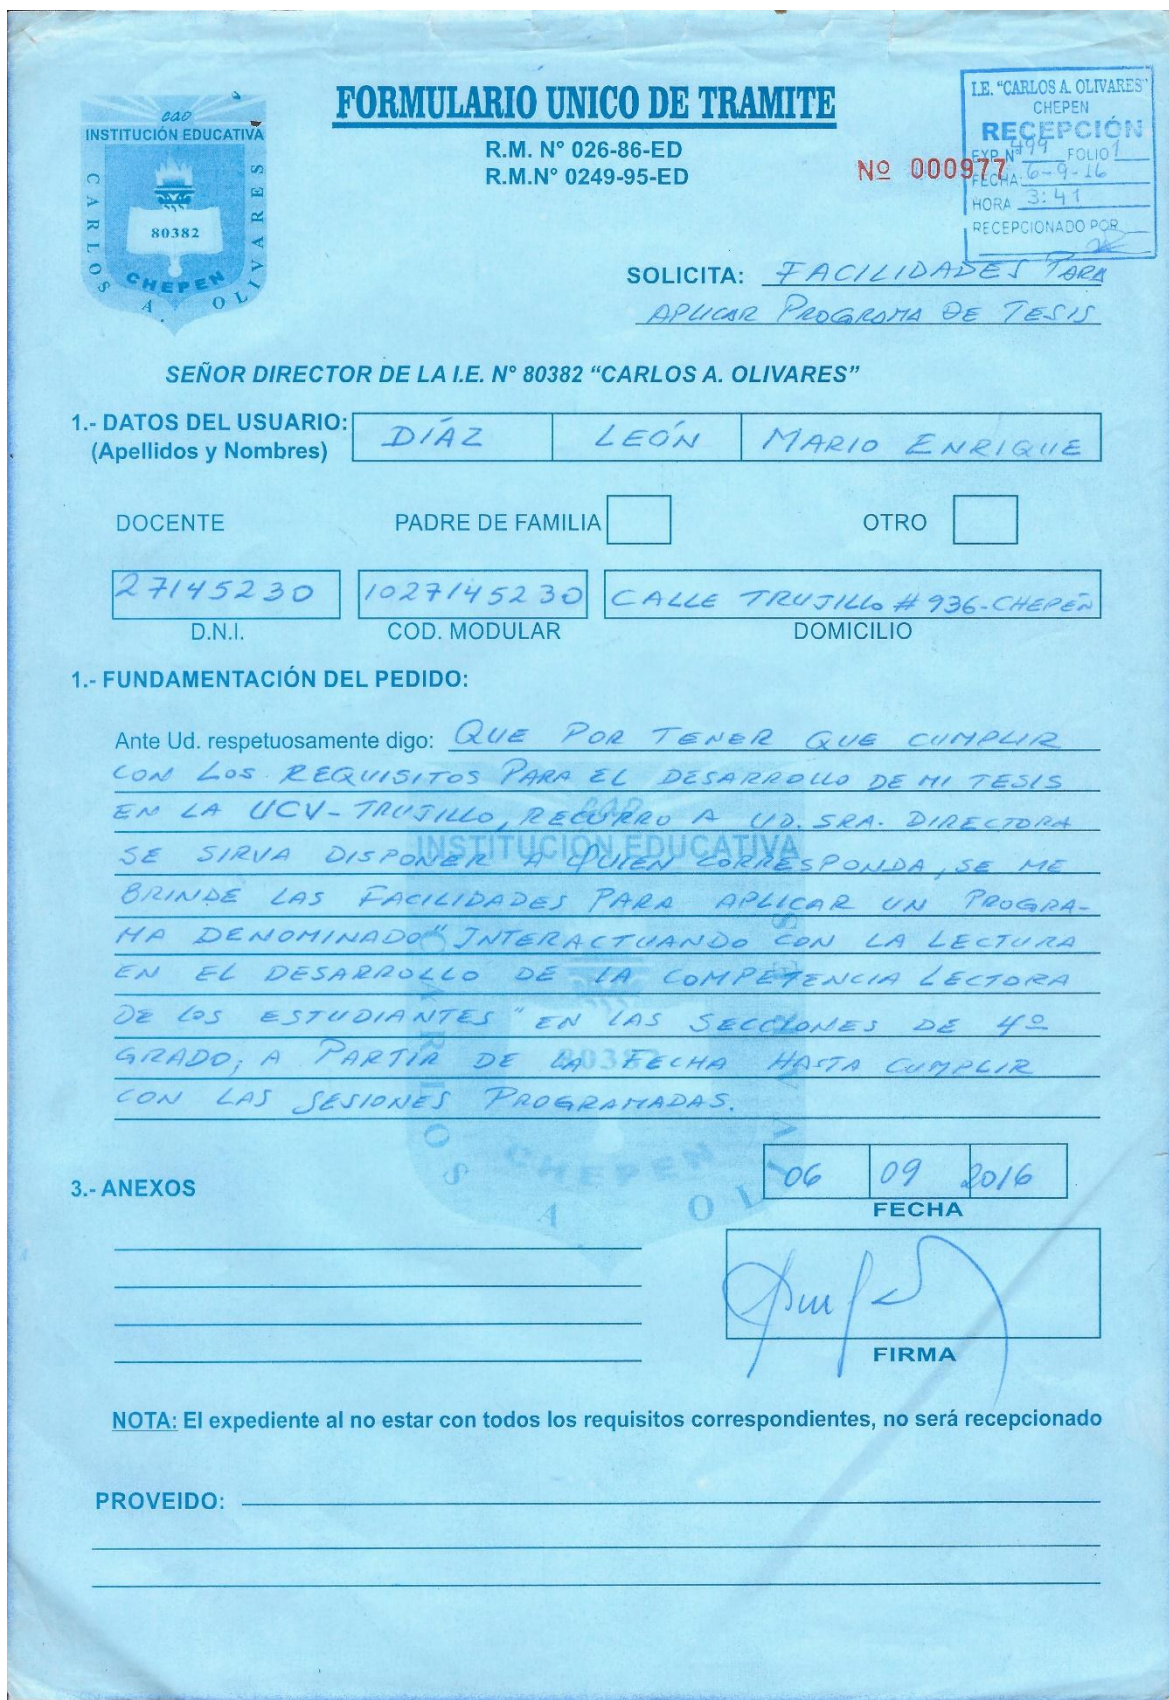 FORMULARIO UNICO DE TRAMITE
R.M. N° 026-86-ED
R.M.N° 0249-95-ED
Nº 000977
I.E. "CARLOS A. OLIVARES"
CHEPEN
RECEPCIÓN
EXP. Nº 499 FOLIO 1
FECHA: 6-9-16
HORA 3:41
RECEPCIONADO POR
CAO
INSTITUCIÓN EDUCATIVA
CARLOS A. OLIVARES
80382
CHEPEN
SOLICITA: FACILIDADES PARA
APLICAR PROGRAMA DE TESIS
SEÑOR DIRECTOR DE LA I.E. N° 80382 “CARLOS A. OLIVARES”
1.- DATOS DEL USUARIO: DÍAZ LEÓN MARIO ENRIQUE
(Apellidos y Nombres)
DOCENTE PADRE DE FAMILIA OTRO
27145230 1027145230 CALLE TRUJILLO # 936-CHEPÉN
D.N.I. COD. MODULAR DOMICILIO
1.- FUNDAMENTACIÓN DEL PEDIDO:
Ante Ud. respetuosamente digo: QUE POR TENER QUE CUMPLIR
CON LOS REQUISITOS PARA EL DESARROLLO DE MI TESIS
EN LA UCV-TRUJILLO, RECURRO A UD. SRA. DIRECTORA
SE SIRVA DISPONER A QUIEN CORRESPONDA, SE ME
BRINDE LAS FACILIDADES PARA APLICAR UN PROGRA-
MA DENOMINADO "INTERACTUANDO CON LA LECTURA
EN EL DESARROLLO DE LA COMPETENCIA LECTORA
DE LOS ESTUDIANTES" EN LAS SECCIONES DE 4º
GRADO; A PARTIR DE LA FECHA HASTA CUMPLIR
CON LAS SESIONES PROGRAMADAS.
CAO
INSTITUCIÓN EDUCATIVA
CARLOS A. OLIVARES
80382
CHEPEN
06 09 2016
3.- ANEXOS
FECHA
FIRMA
NOTA: El expediente al no estar con todos los requisitos correspondientes, no será recepcionado
PROVEIDO: